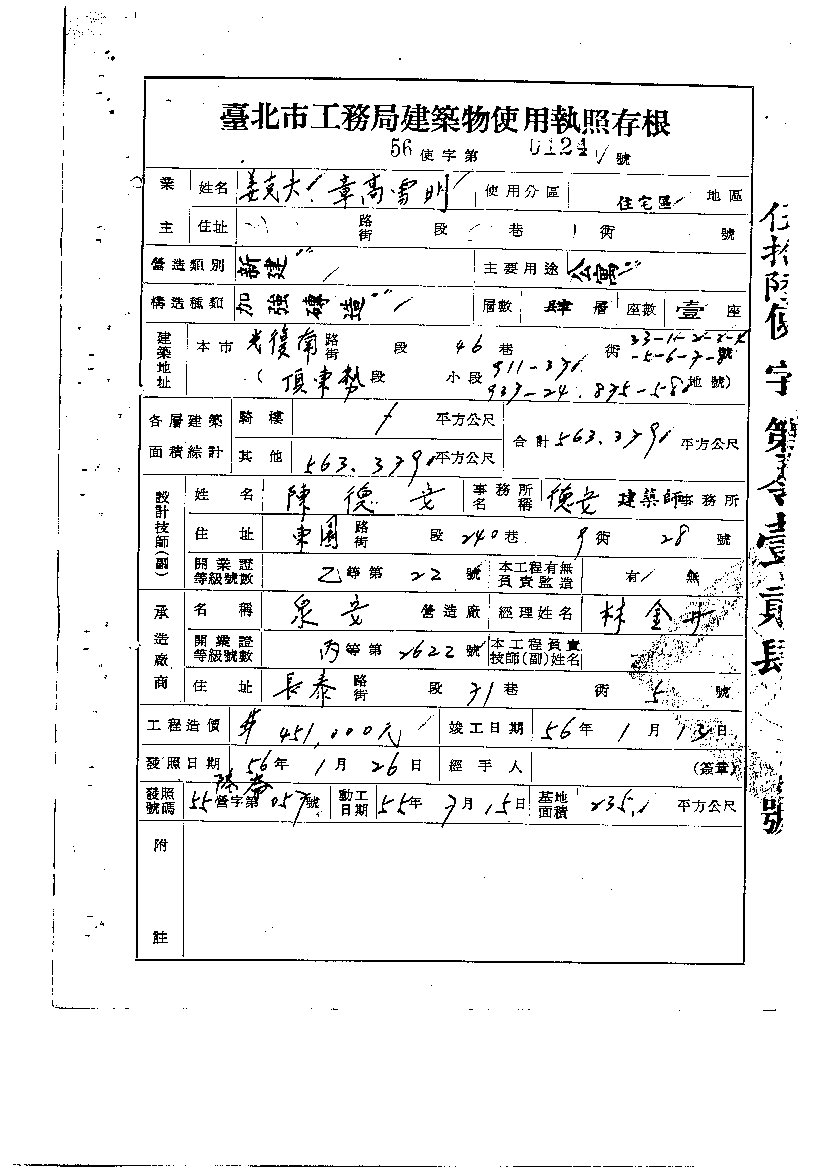 臺北市工務局建築物使用執照存根
56 使字第 0124 號
業主 姓名 姜克夫 章高雪明 使用分區 住宅區 地區
住址 路街 段 巷 衖 號
營造類別 新建 主要用途 公寓
構造種類 加強磚造 層數 肆 層 座數 壹 座
建築地址 本市 光復南 路街 段 46 巷 衖 號
(頂東勢 段 小段 911-37 937-24 875-58 地號)
各層建築面積綜計 騎樓 平方公尺 合計 563.379 平方公尺
其他 563.379 平方公尺
設計技師(副) 姓名 陳德安 事務所名稱 德安建築師事務所
住址 東園 路街 段 240 巷 9 衖 28 號
開業證等級號數 乙等第 22 號 本工程有無負責監造 有 無
承造廠商 名稱 泉安 營造廠 經理姓名 林金
開業證等級號數 丙等第 2622 號 本工程負責技師(副)姓名
住址 長泰 路街 段 71 巷 衖 5 號
工程造價 451,000元 竣工日期 56年1月13日
發照日期 56年1月26日 經手人 (簽章)
發照號碼 55營字第057號 動工日期 55年7月15日 基地面積 235.1 平方公尺
附註
伍拾陸使字第零壹貳肆號